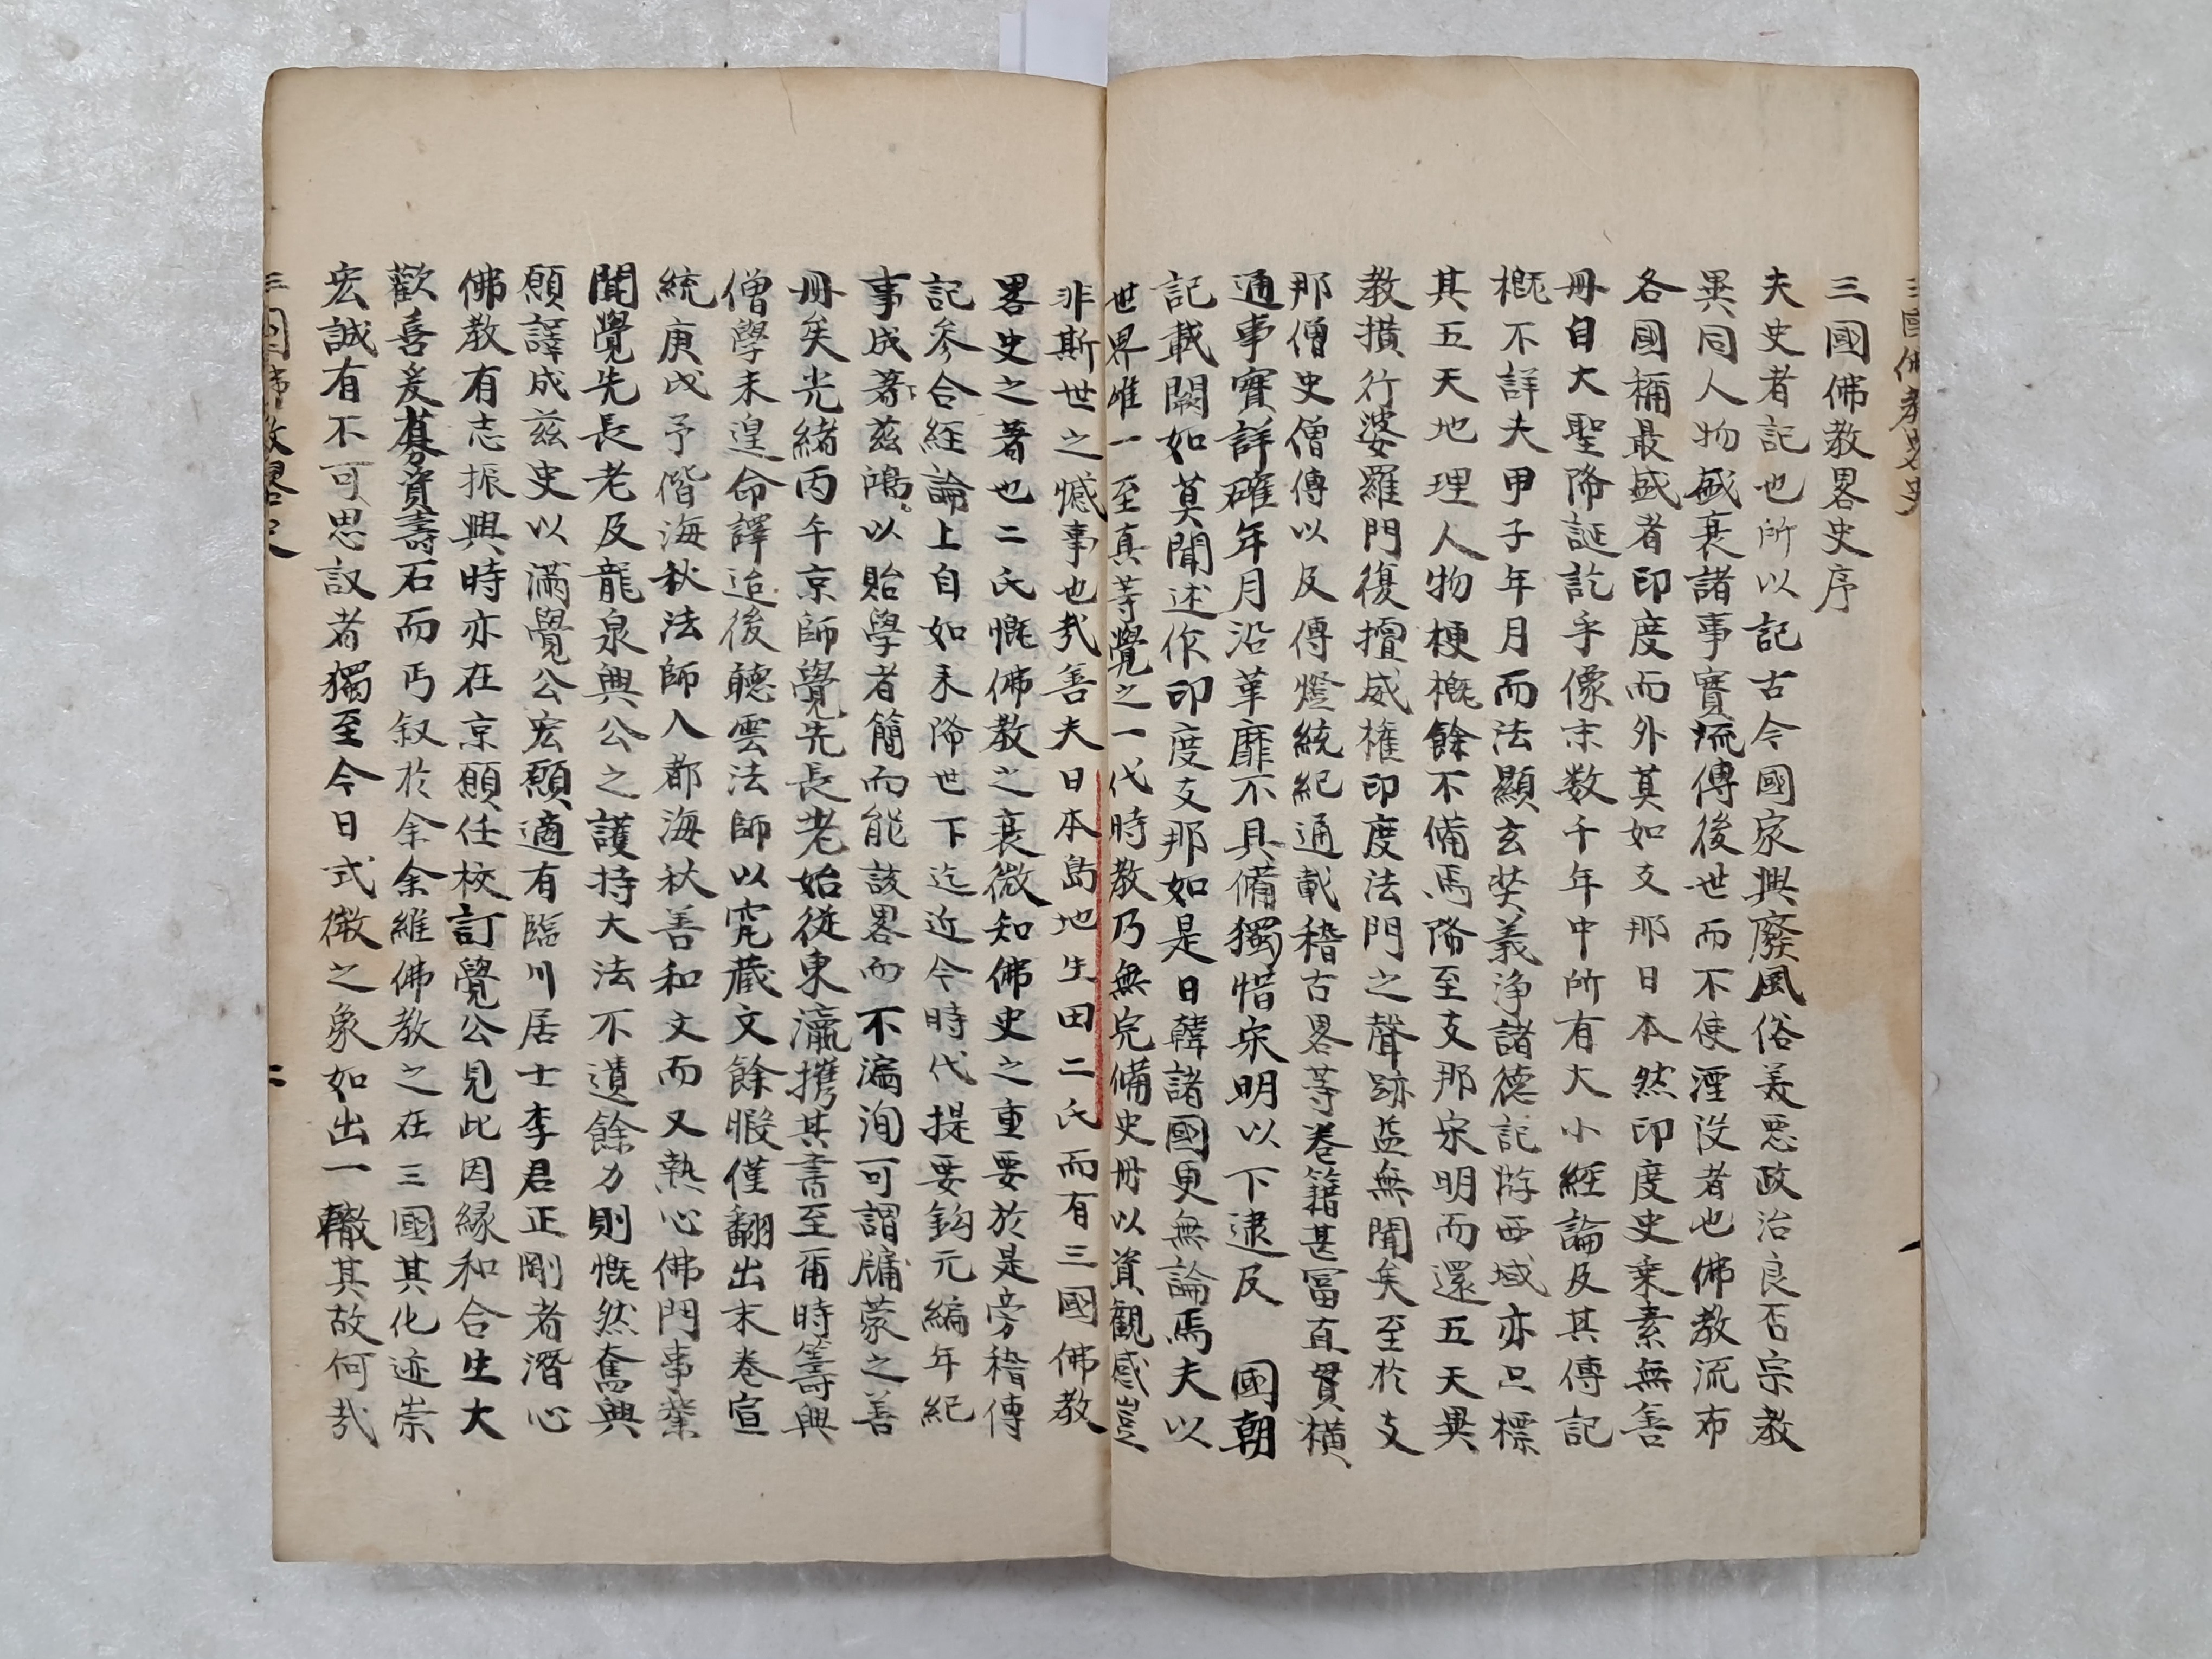 三國佛教畧史序
夫史者記也所以記古今國家興廢風俗美惡政治良否宗教
異同人物盛衰諸事實流傳後世而不使湮没者也佛教流布
各國稱最盛者印度而外莫如支那日本然印度史乗素無善
冊自大聖降誕訖乎像末数千年中所有大小經論及其傳記
概不詳夫甲子年月而法顯玄奘義浄諸德記游西域亦只標
其五天地理人物梗概餘不備焉降至支那宋明而還五天異
教横行婆羅門復擅威権印度法門之聲跡益無聞矣至於支
那僧史僧傳以及傳燈統紀通載稽古畧等卷籍甚富直貫横
通事實詳確年月沿革靡不具備獨惜宋明以下逮及 國朝
記載闕如莫聞述作印度支那如是日韓諸國更無論焉夫以
世界唯一至真等覺之一代時教乃無完備史冊以資觀感豈
非斯世之憾事也㢤善夫日本島地生田二氏而有三國佛教
畧史之著也二氏慨佛教之衰微知佛史之重要於是旁稽傳
記參合經論上自如来降世下迄近今時代提要鈎元編年紀
事成著兹鴻以貽學者簡而能該畧而不漏洵可謂牖蒙之善
冊矣光緒丙午京師覺先長老始從東瀛攜其書至甫時籌興
僧學未遑命譯迨後聽雲法師以究藏文餘暇僅翻出末卷宣
統庚戌予偕海秋法師入都海秋善和文而又熱心佛門事業
聞覺先長老及龍泉興公之護持大法不遺餘力則慨然奮興
願譯成兹史以滿覺公宏願適有臨川居士李君正剛者潛心
佛教有志振興時亦在京願任校訂覺公見此因緣和合生大
歡喜爰募資壽石而丐叙於余余維佛教之在三國其化迹崇
宏誠有不可思議者獨至今日式微之象如出一轍其故何㢤
三國佛教畧史 二